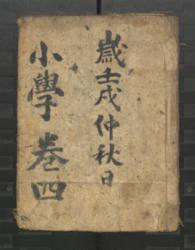 歲壬戌仲秋日
小學 卷四